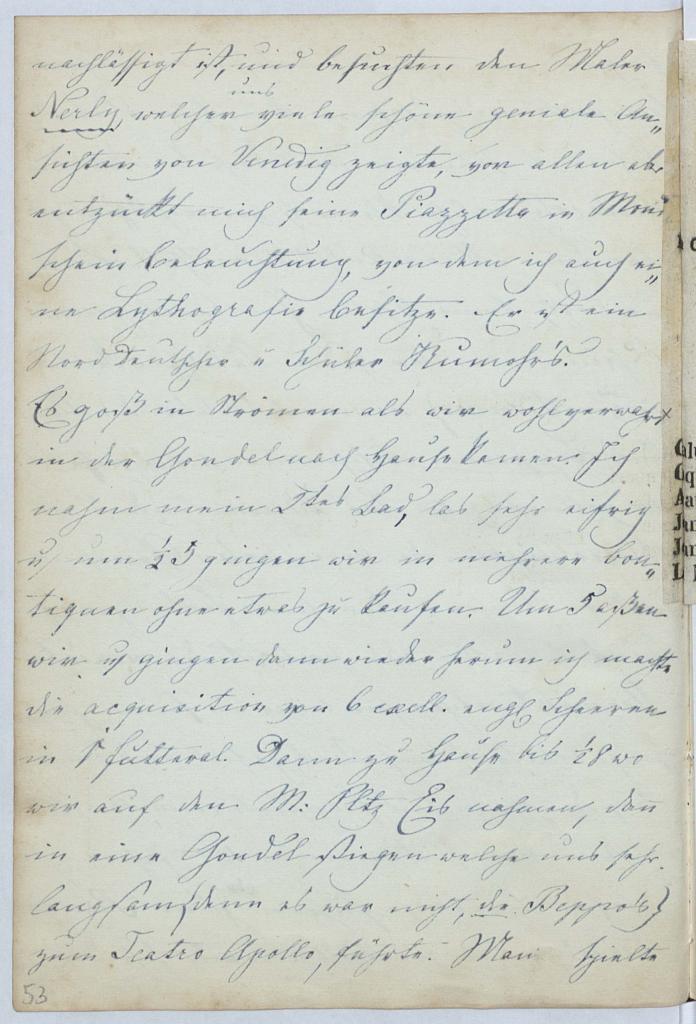 nachlässigt ist, und besuchten den Maler
Nerly, welcher uns viele schöne geniale An„
sichten von Venedig zeigte, vor allen abr
entzückt mich seine Piazzetta in Mond
schein beleuchtung, von dem ich auch ei„
ne Lythografie besitze. Er ist ein
Nord Deutscher u Schüler Rumohr's.
Es goß in Strömen als wir wohlverwahrt
in der Gondel nach Hause kamen. Ich
nahm mein Bad, las sehr eifrig
u um ½ 5 gingen wir in mehrere bou„
tiquen ohne etwas zu kaufen. Um 5 aßen
wir u gingen dann wieder herum ich machte
die acquisition von 6 excell. engl Scheeren
in 1 futteral. Dann zu Hause bis ½ 8 wo
wir auf den M: Pltz Eis nahmen, dann
in eine Gondel stiegen welche uns sehr
langsam (denn es war nicht, die Beppo's)
zum Teatro Apollo, führte. Man spielte
53